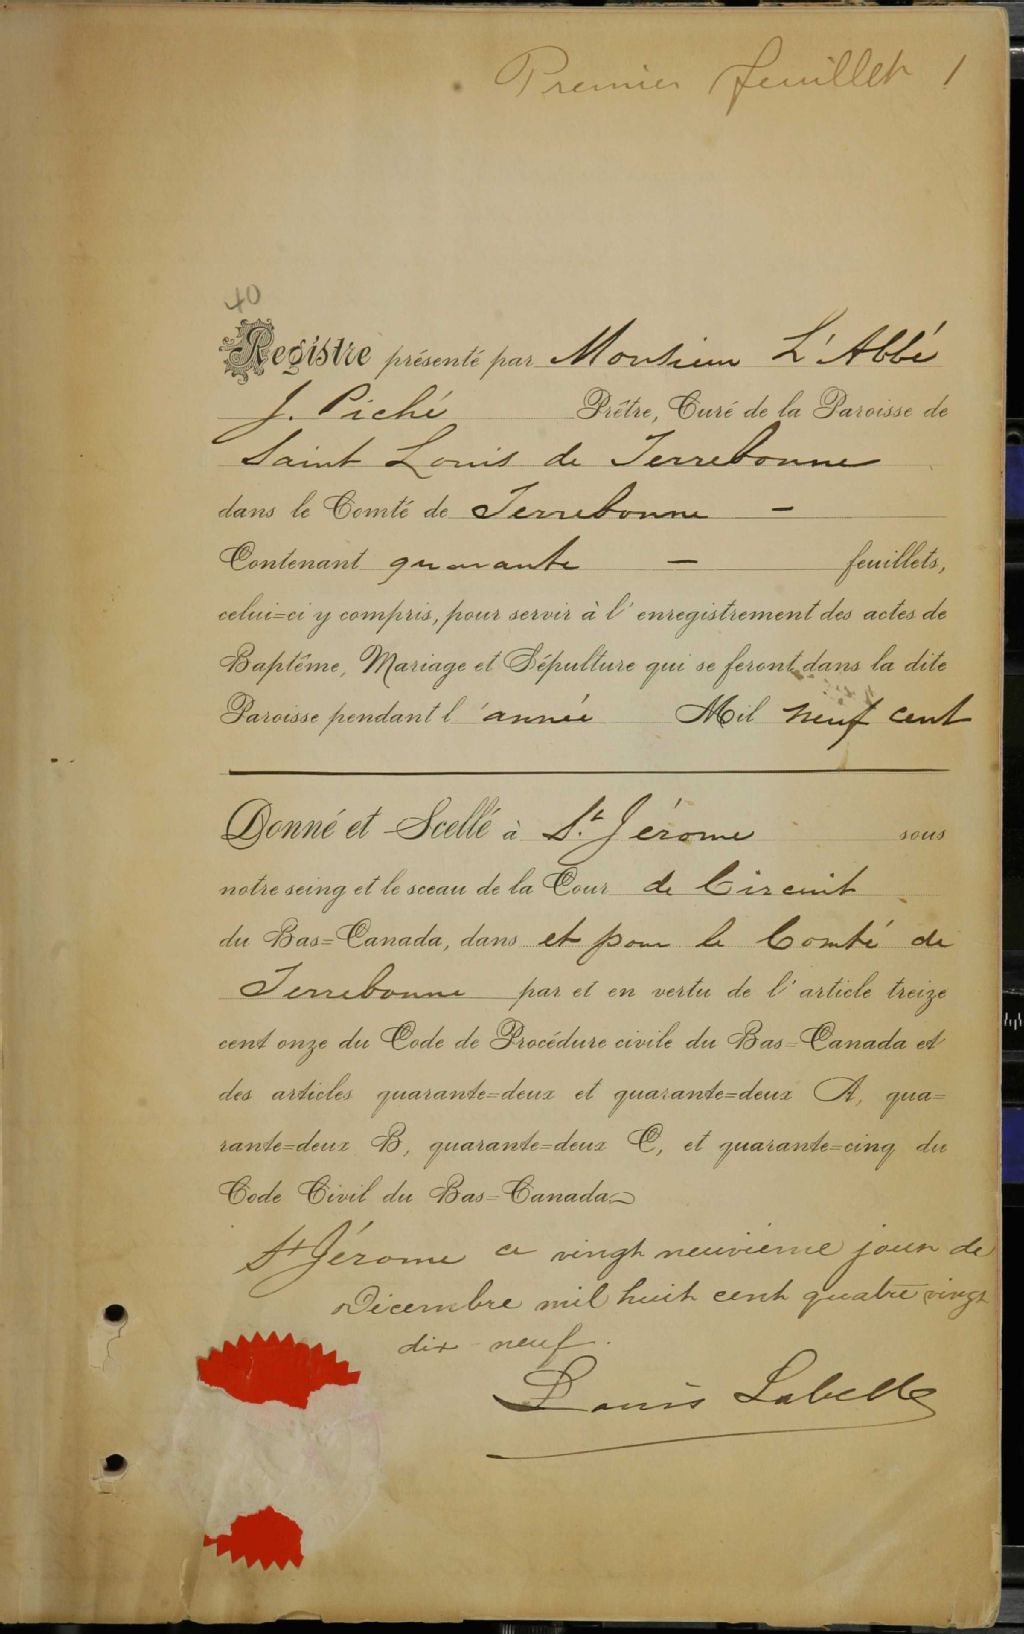 Premier feuillet 1
40
Registre présenté par Monsieur L'Abbé
J. Piché Prêtre, Curé de la Paroisse de
Saint Louis de Terrebonne
dans le Comté de Terrebonne –
Contenant quarante – feuillets,
celui=ci y compris, pour servir à l'enregistrement des actes de
Baptême, Mariage et Sépulture qui se feront dans la dite
Paroisse pendant l'année Mil neuf cent
Donné et Scellé à St. Jérome sous
notre seing et le sceau de la Cour de Circuit
du Bas=Canada, dans et pour le Comté de
Terrebonne par et en vertu de l'article treize
cent onze du Code de Procédure civile du Bas=Canada et
des articles quarante=deux et quarante=deux A, qua=
rante=deux B, quarante=deux C, et quarante=cinq du
Code Civil du Bas=Canada
St Jérome ce vingt neuvième jour de
Décembre mil huit cent quatre vingt
dix-neuf.
Louis Labelle